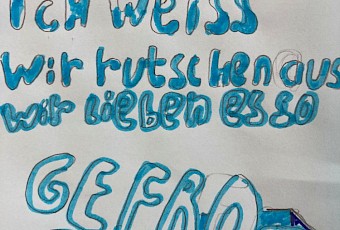 ICH WEISS
wir rutschen aus
wir lieben es so
GEFRO